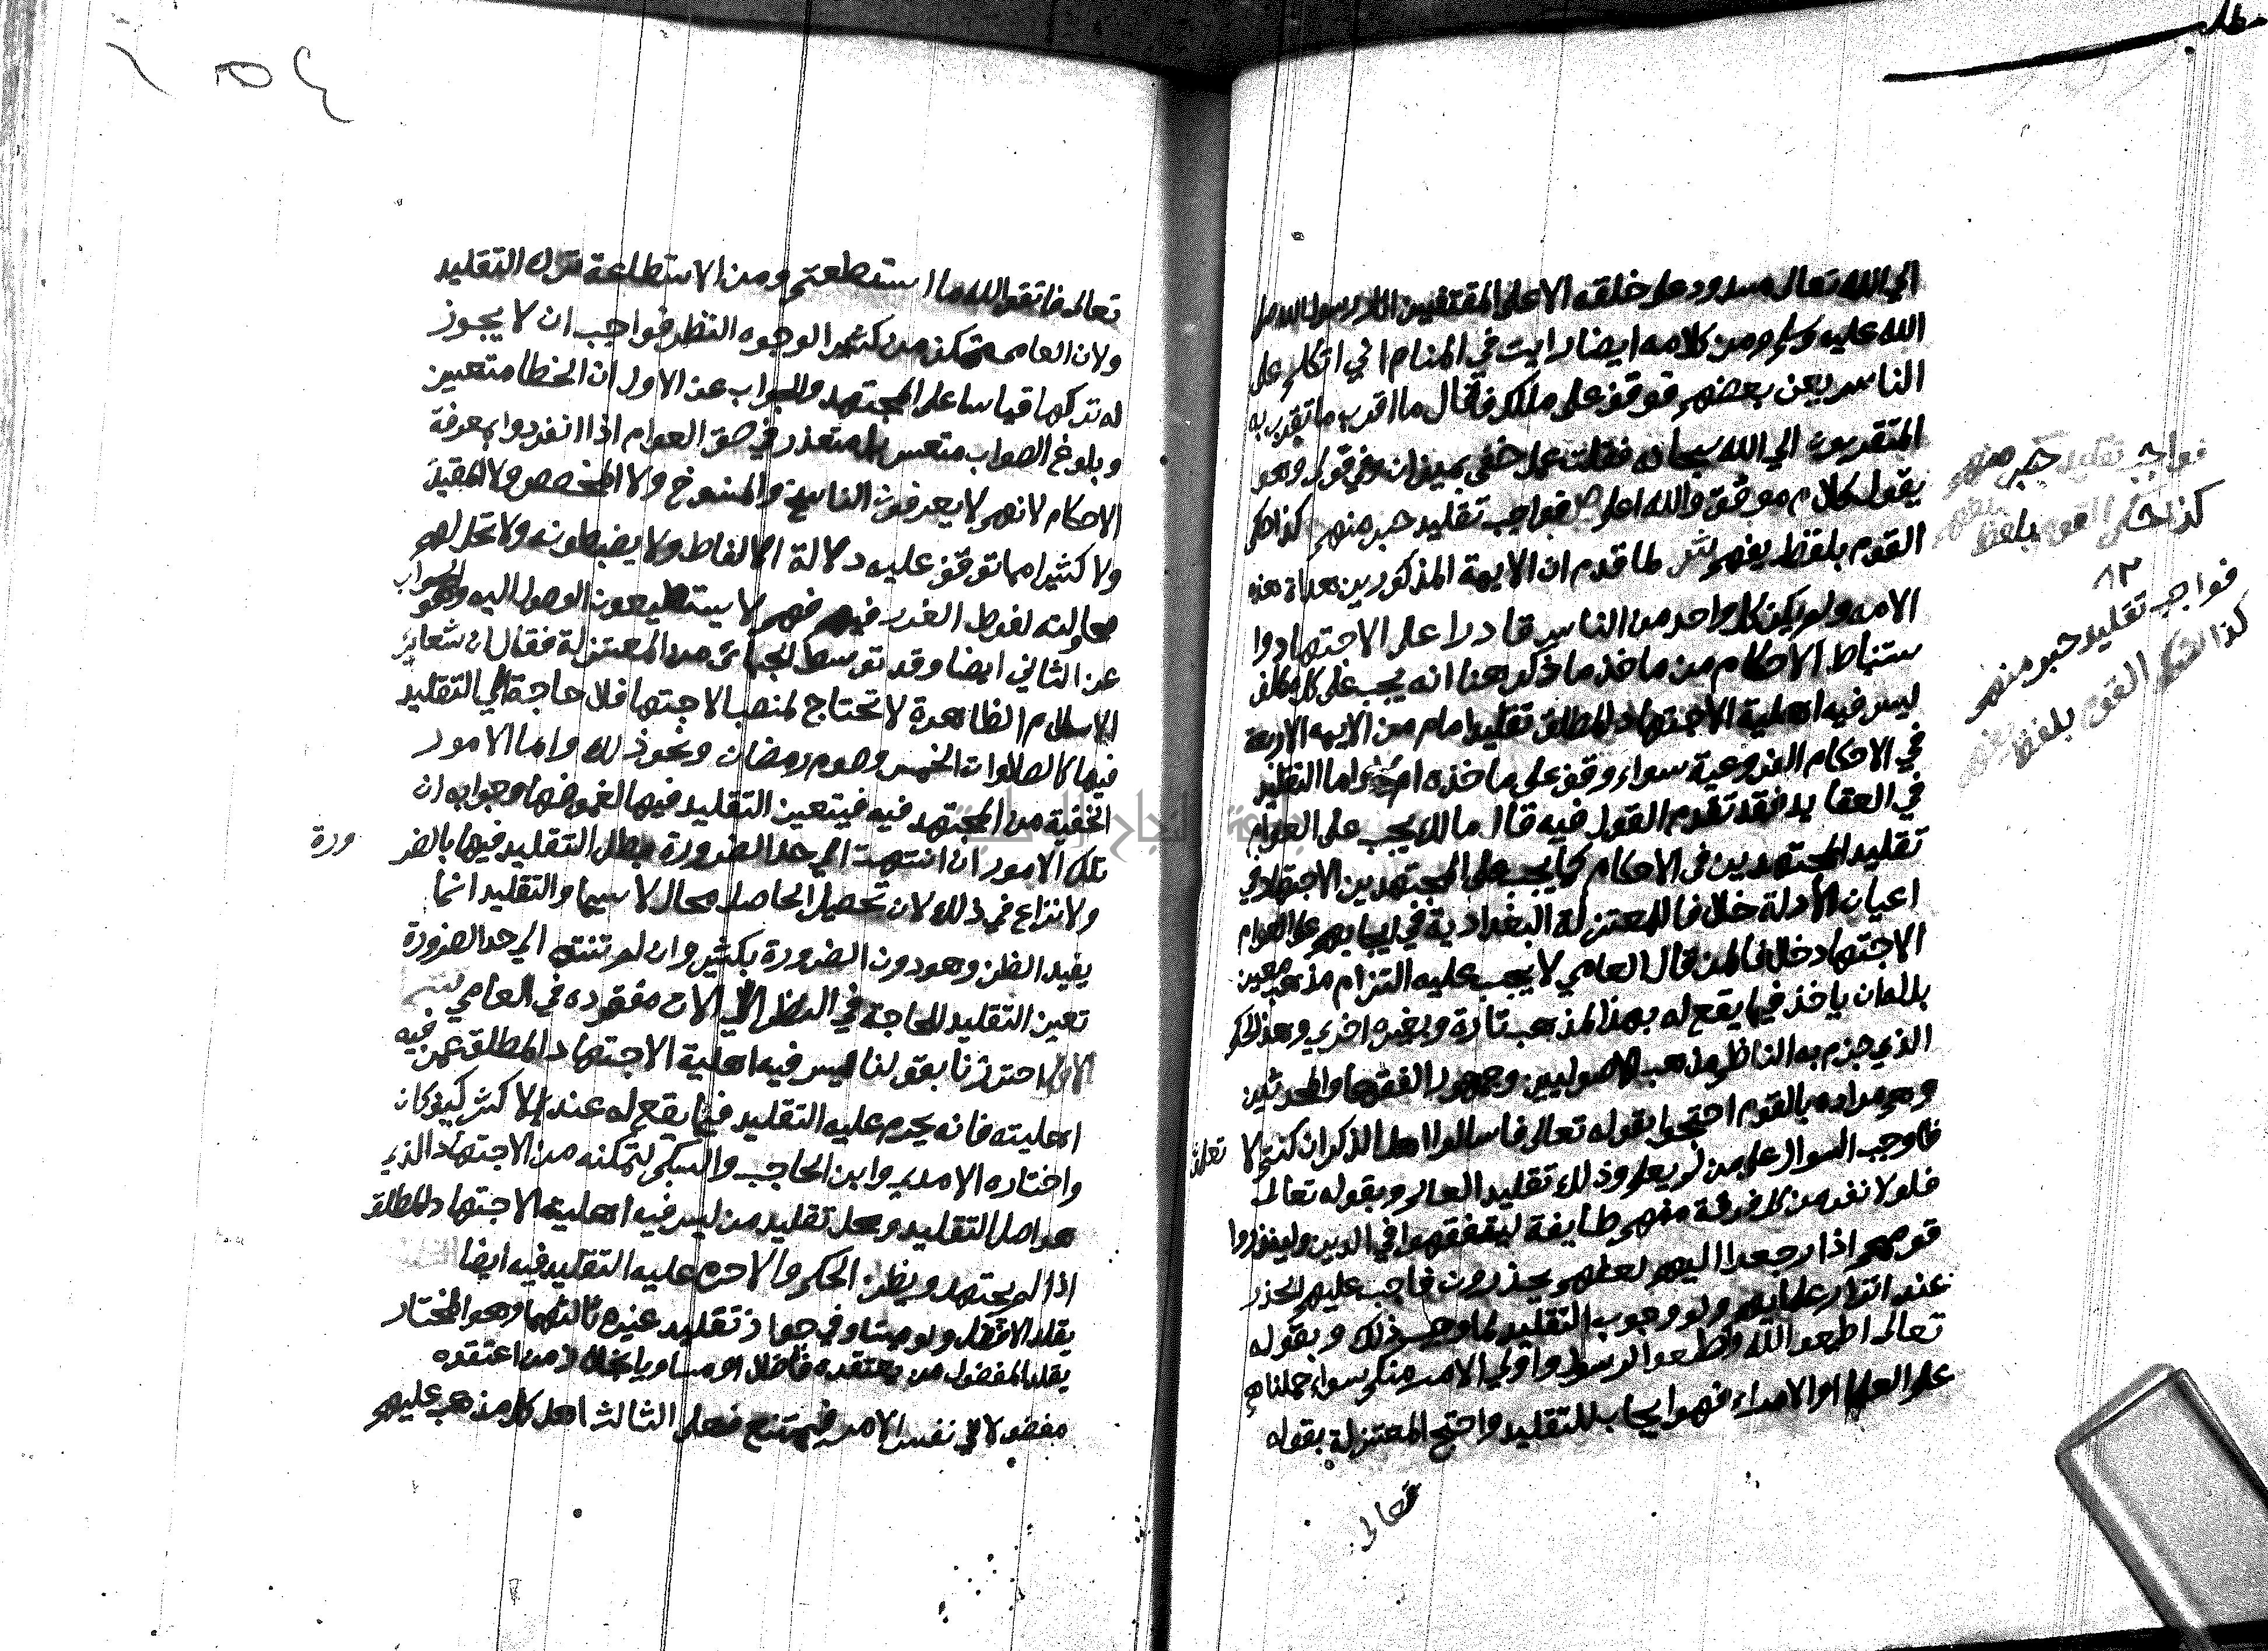 الى الله تعالى مسدود على خلقه الا على المقتفين اثار رسول الله صلى
الله عليه وسلم ومن كلامه ايضا رايت في المنام اني اتكلم على
الناس يعن بعضهم فوقف على ملك فقال ما اقرب ما تقرب به
المتقربون الي الله سبحانه فقلت عمل خفى بميزان وفي فولى وهو
يقول كلام موفق والله اعلم ص فواجب تقليد حبر منهم كذا حكى
القوم بلفظ يفهم ش لما قدم ان الايمة المذكورين هداة هذه
الامه ولم يكن كل واحد من الناس قادرا على الاجتهاد وا
ستنباط الاحكام من ماخذ ما ذكر هنا انه يجب على كل مكلف
ليس فيه اهلية الاجتهاد المطلق تقليد امام من الايمه الاربعة
في الاحكام الفروعية سواء وقف على ماخذه ام لا واما التقليد
في العقايد فقد تقدم القول فيه قال مالك يجب على العوام
تقليد المجتهدين في الاحكام كما يجب على المجتهدين الاجتهاد في
اعيان الادلة خلافا للمعتزلة البغدادية في ايجابهم على العوام
الاجتهاد خلافا لمن قال العامي لا يجب عليه التزام مذهب معين
بل له ان ياخذ فيما يقع له بهذا المذهب تارة وبغيره اخري وهذا الحكم
الذي جزم به الناظم مذهب الاصوليين وجمهور الفقها والمحدثين
وهو مراده بالقوم احتجوا بقوله تعالى فاسالوا اهل الذكر ان كنتم لا تعلمون
فاوجب السوال على من لم يعلم وذلك تقليد العالم وبقوله تعالى
فلولا نفر من كل فرقة منهم طايفة ليتفقهوا في الدين ولينذروا
قومهم اذا رجعوا اليهم لعلهم يحذرون فاجب عليهم الحذر
عند انذار علمايهم ولو وجوب التقليد لما وجب ذلك وبقوله
تعالى اطيعوا الله واطيعوا الرسول واولي الامر منكم سواء حملناهم
على العلما او الامراء فهو ايجاب للتقليد واحتج المعتزلة بقوله
تعالى
فواجب تقليد حبر منهم
كذا حكى القوم بلفظ يفهم
٨٢
فواجب تقليد حبر منهم
كذا حكى القوم بلفظ يفهم
تعالى فاتقوا الله ما استطعتم ومن الاستطاعة ترك التقليد
ولان العامى متمكن من كثير الوجوه النظر فواجب ان لا يجوز
له تركها قياسا على المجتهد والجواب عن الاول ان الخطا متعين
وبلوغ الصواب متعسر بل متعذر في حق العوام اذا انفردوا بمعرفة
الاحكام لانهم لا يعرفون الناسخ والمنسوخ ولا المخصص ولا المقيد
ولا كثيرا مما توقف عليه دلالة الالفاظ ولا يضبطونه ولا تحل لهم
محاولته لفرط الغرر فيهم فهم لا يستطيعون الوصول اليه وهو الجواب
عن الثاني ايضا وقد توسط الجبائى من المعتزلة فقال ان شعاير
الاسلام الظاهرة لا تحتاج لمنصب الاجتهاد فلا حاجة الي التقليد
فيها كالصلوات الخمس وصوم رمضان ونحو ذلك واما الامور
الخفية من المجتهد فيه فيتعين التقليد فيها لغموضها وجوابه ان
تلك الامور ان انتهت الى حد الضرورة بطل التقليد فيها بالضرورة
ولا نزاع في ذلك لان تحصيل الحاصل محال لا سيما والتقليد انما
يفيد الظن وهو دون الضرورة بكثير وان لم تنته الى حد الضرورة
تعين التقليد للحاجة في النظر الى الات مفقوده في العامي
الاول احترزنا بقولنا ليس فيه اهلية الاجتهاد المطلق عمن فيه
اهليته فانه يحرم عليه التقليد فيما يقع له عند الاكثر كيف كان
واختاره الامدي وابن الحاجب والسبكى لتمكنه من الاجتهاد الذي
هو اصل التقليد ومحل تقليد من ليس فيه اهلية الاجتهاد المطلق
اذا لم يجتهد ويظن الحكم والا حرم عليه التقليد فيه ايضا
يقلد الافضل ولو ميتا وفي جواز تقليد غيره ثالثها وهو المختار
يقلد المفضول من يعتقده فاضلا او مساويا بخلاف من اعتقده
مفضولا في نفس الامر فيمتنع فعلى الثالث اهل كل مذهب عليهم